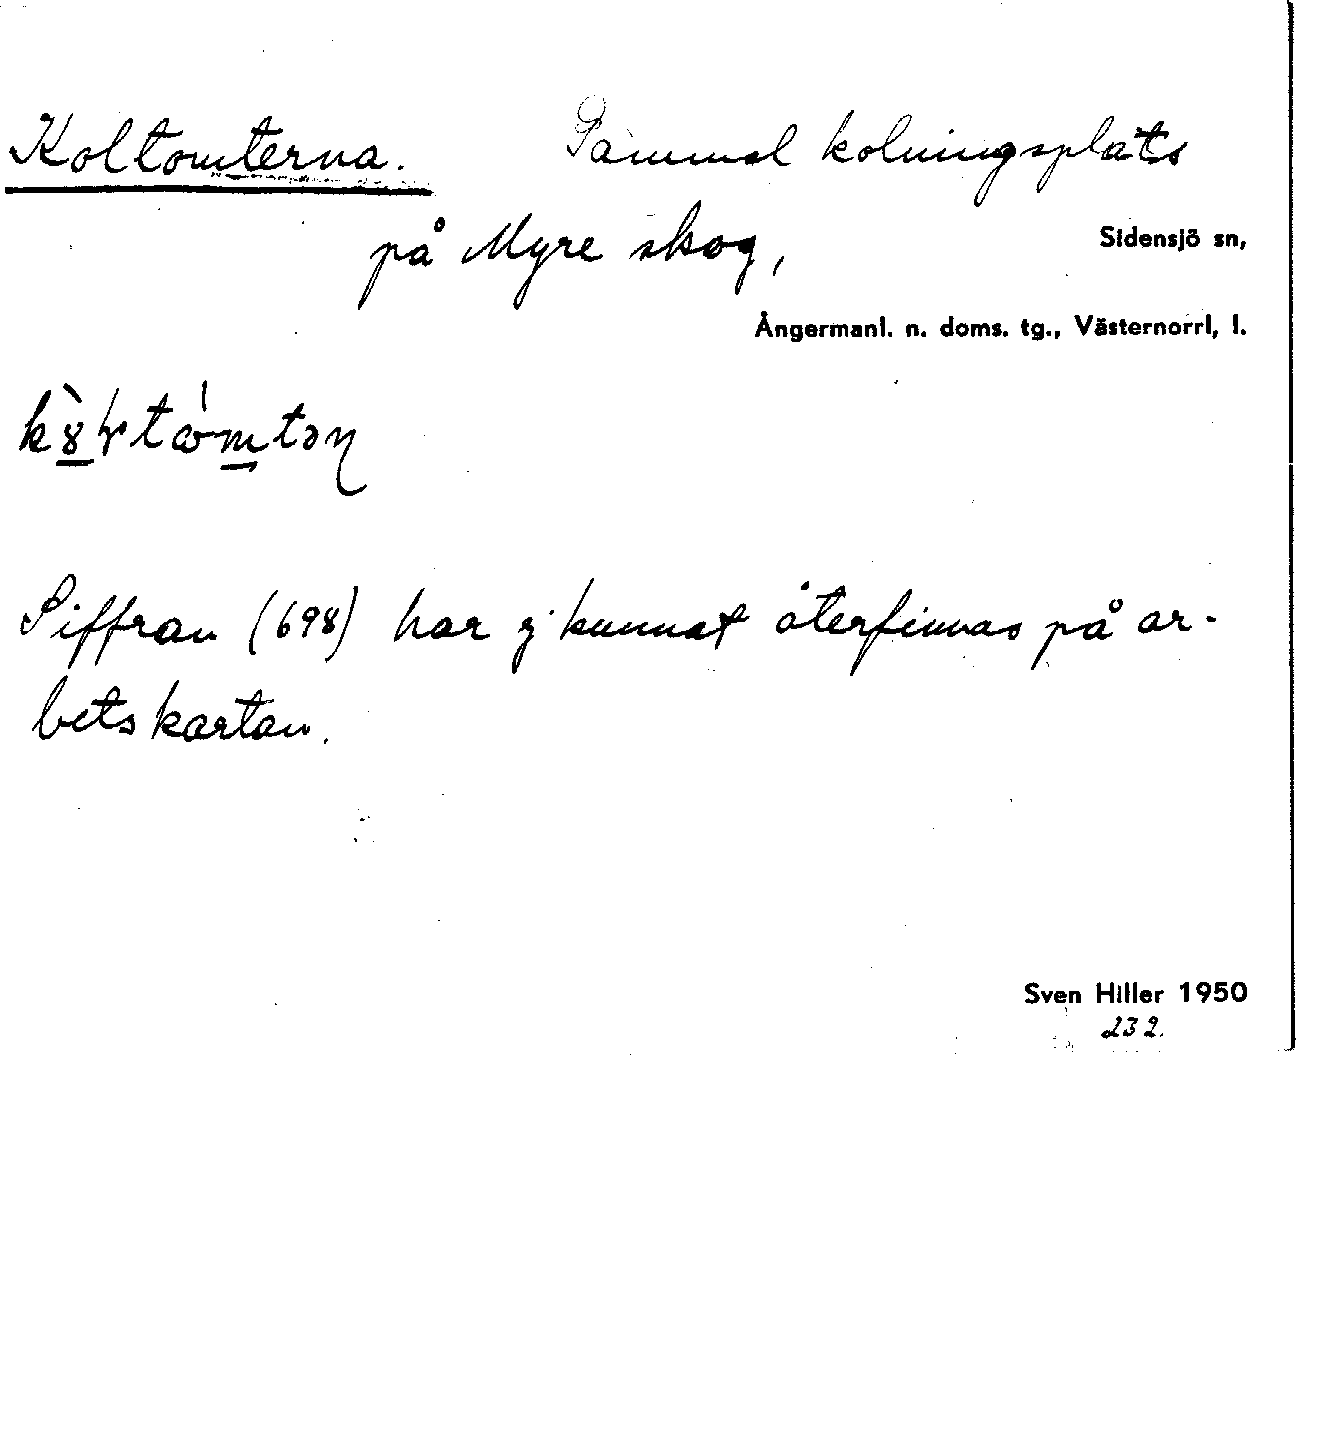 Koltomterna. Gammal kolningsplats
på Myre skog,
Sidensjö sn,
Ångermanl. n. doms. tg., Västernorrl, l.
Siffran (698) har ej kunnat återfinnas på ar-
betskartan.
Sven Hiller 1950
232.